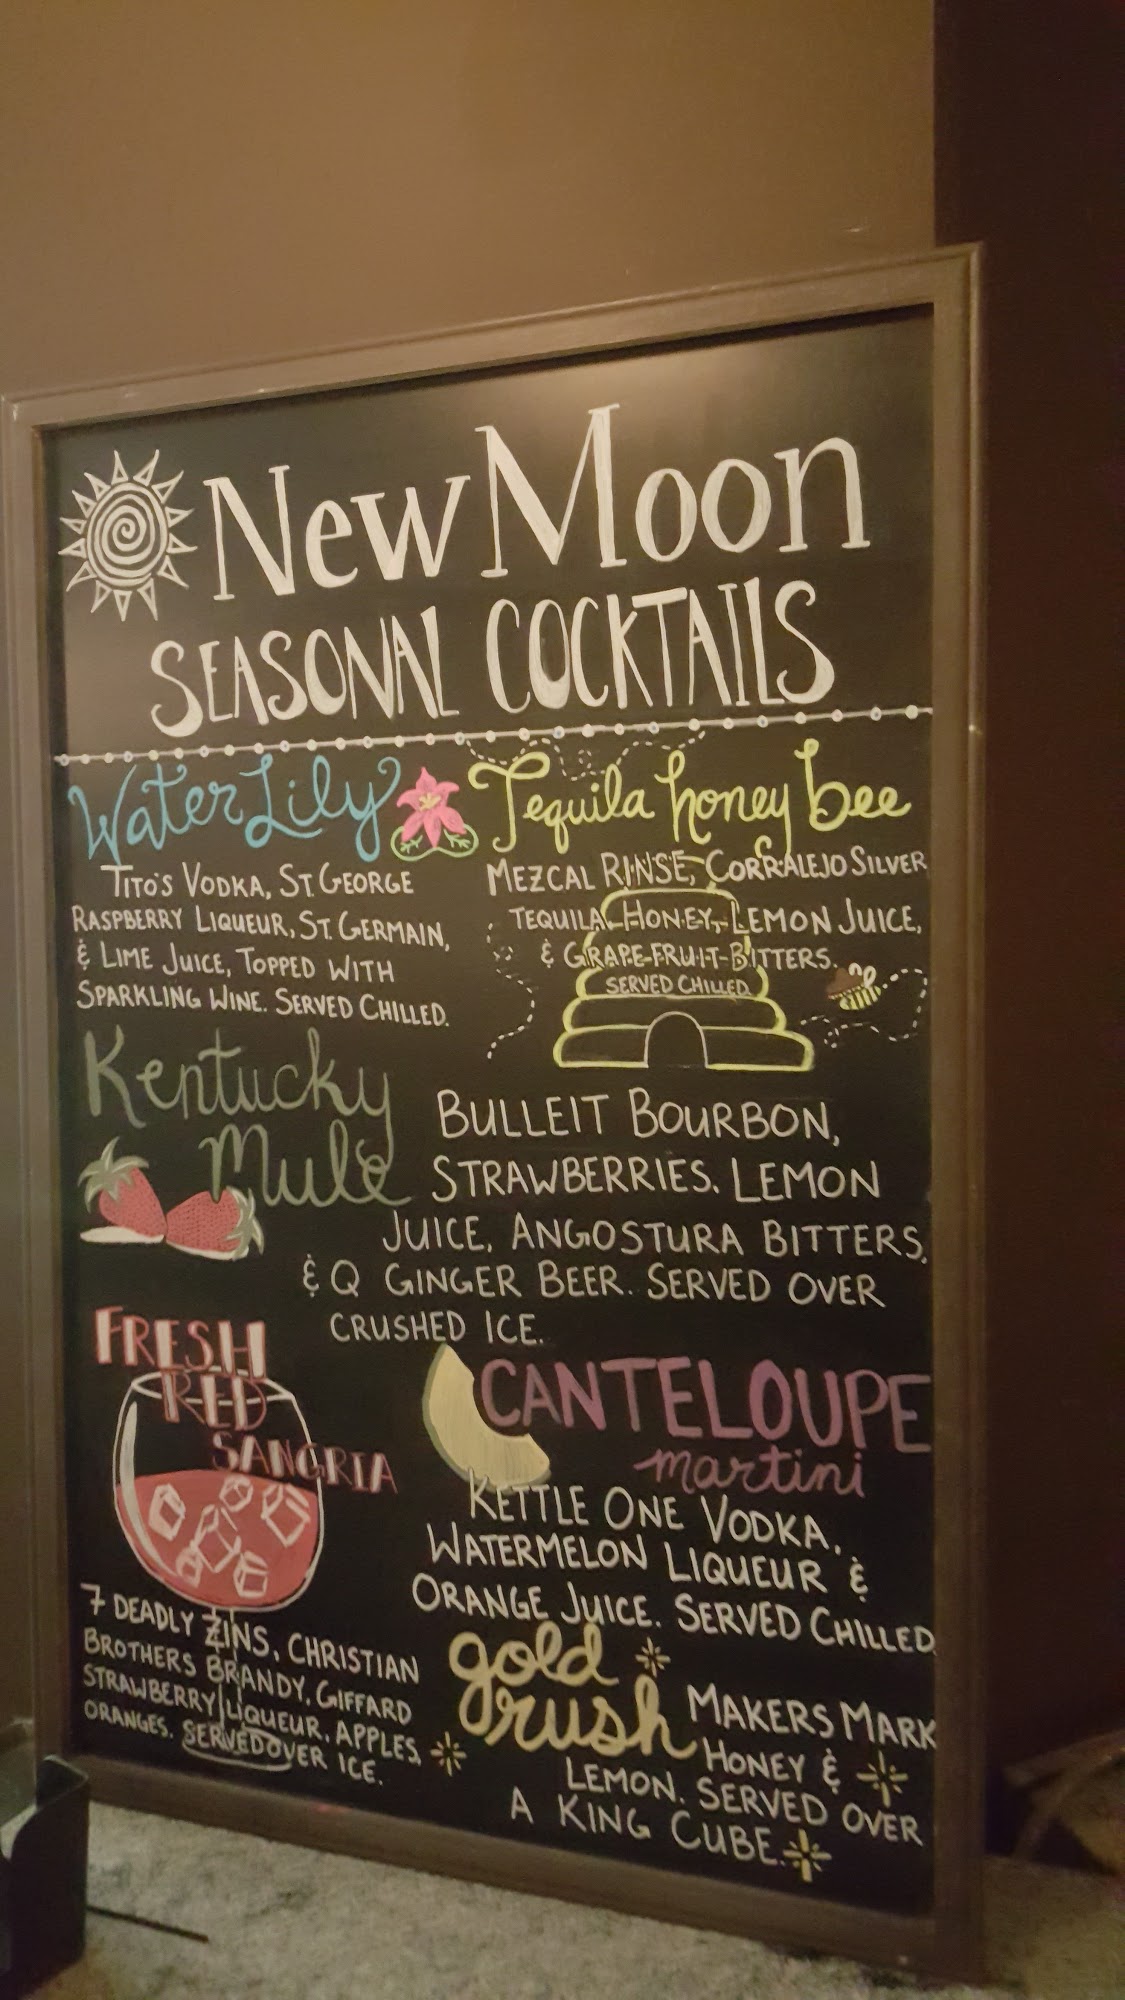 New Moon
SEASONAL COCKTAILS
Water Lily
TITO'S VODKA, ST. GEORGE
RASPBERRY LIQUEUR, ST. GERMAIN,
& LIME JUICE, TOPPED WITH
SPARKLING WINE. SERVED CHILLED.
Tequila honey bee
MEZCAL RINSE, CORRALEJO SILVER
TEQUILA, HONEY, LEMON JUICE,
& GRAPE-FRUIT-BITTERS.
SERVED CHILLED.
Kentucky
Mule
BULLEIT BOURBON,
STRAWBERRIES. LEMON
JUICE, ANGOSTURA BITTERS,
& Q GINGER BEER. SERVED OVER
CRUSHED ICE.
FRESH
RED
SANGRIA
7 DEADLY ZINS, CHRISTIAN
BROTHERS BRANDY, GIFFARD
STRAWBERRY LIQUEUR, APPLES,
ORANGES. SERVED OVER ICE.
CANTELOUPE
martini
KETTLE ONE VODKA,
WATERMELON LIQUEUR &
ORANGE JUICE. SERVED CHILLED
gold
rush
MAKERS MARK
HONEY &
LEMON. SERVED OVER
A KING CUBE.